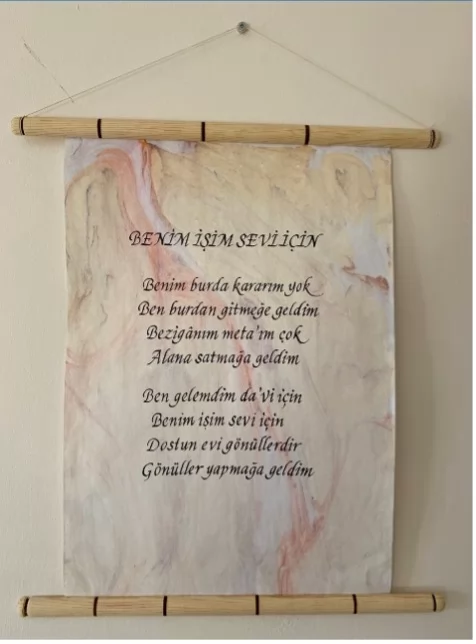 BENİM İŞİM SEVİ İÇİN
Benim burda kararım yok
Ben burdan gitmeğe geldim
Bezigânım meta'ım çok
Alana satmağa geldim
Ben gelemdim da'vi için
Benim işim sevi için
Dostun evi gönüllerdir
Gönüller yapmağa geldim